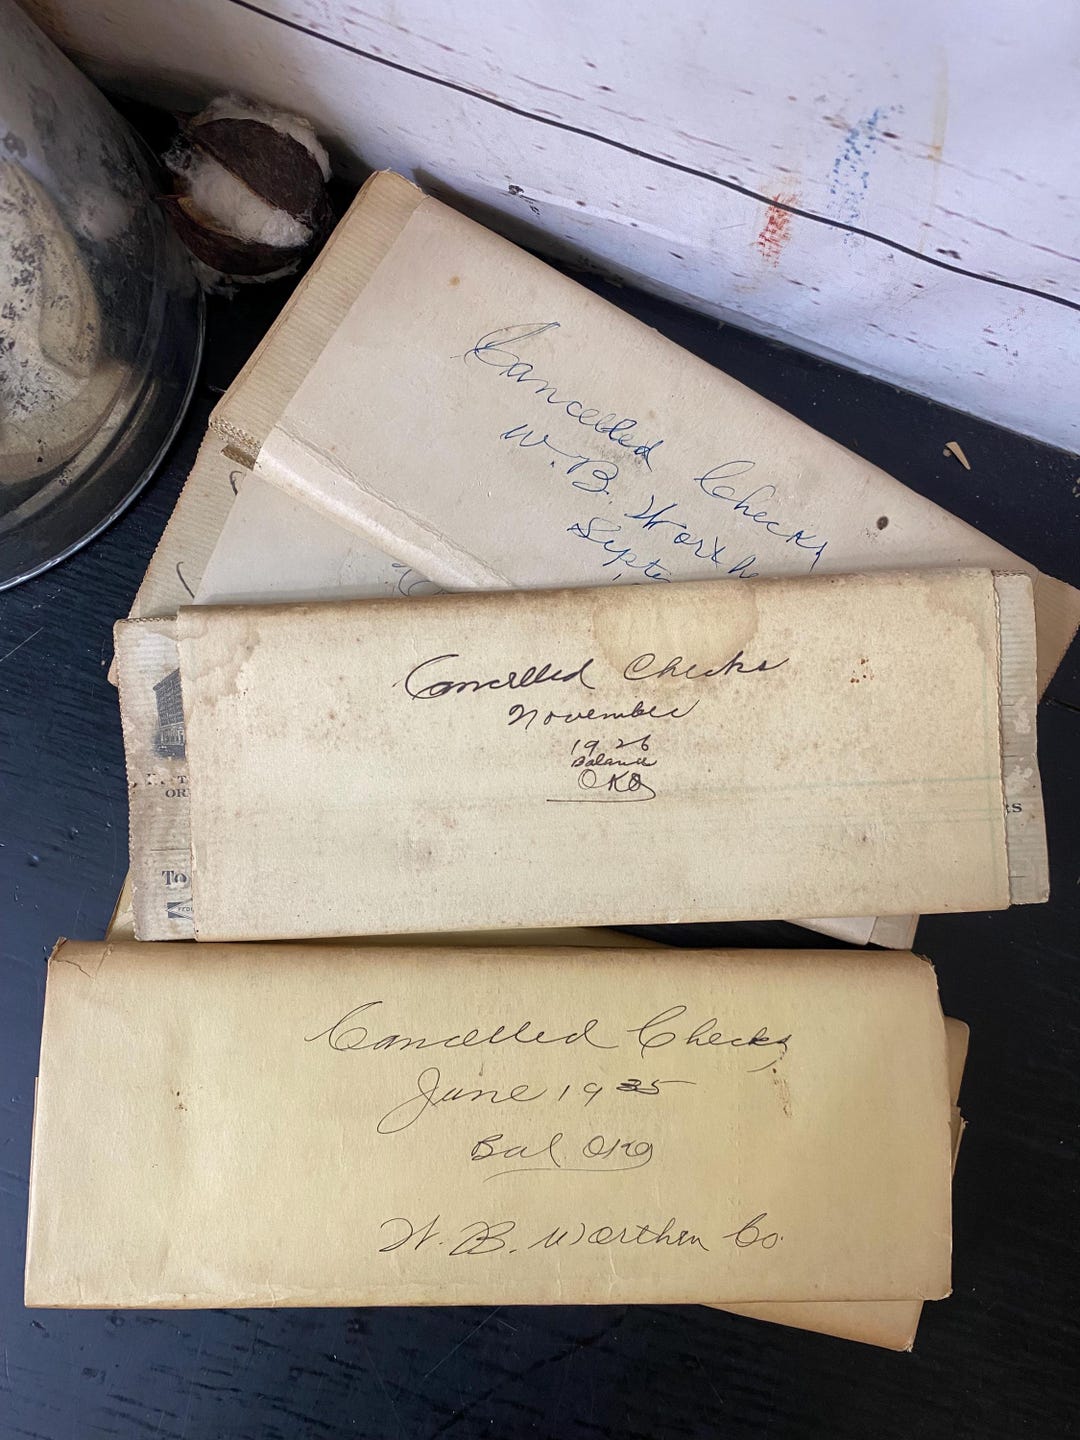 Cancelled Checks
W. B. Worthe
Septe
Cancelled Checks
November
1926
Balance
OKO
OR
To
FEDE
RS
Cancelled Checks
June 1935
Bal OKO
W. B. Worthen Co.